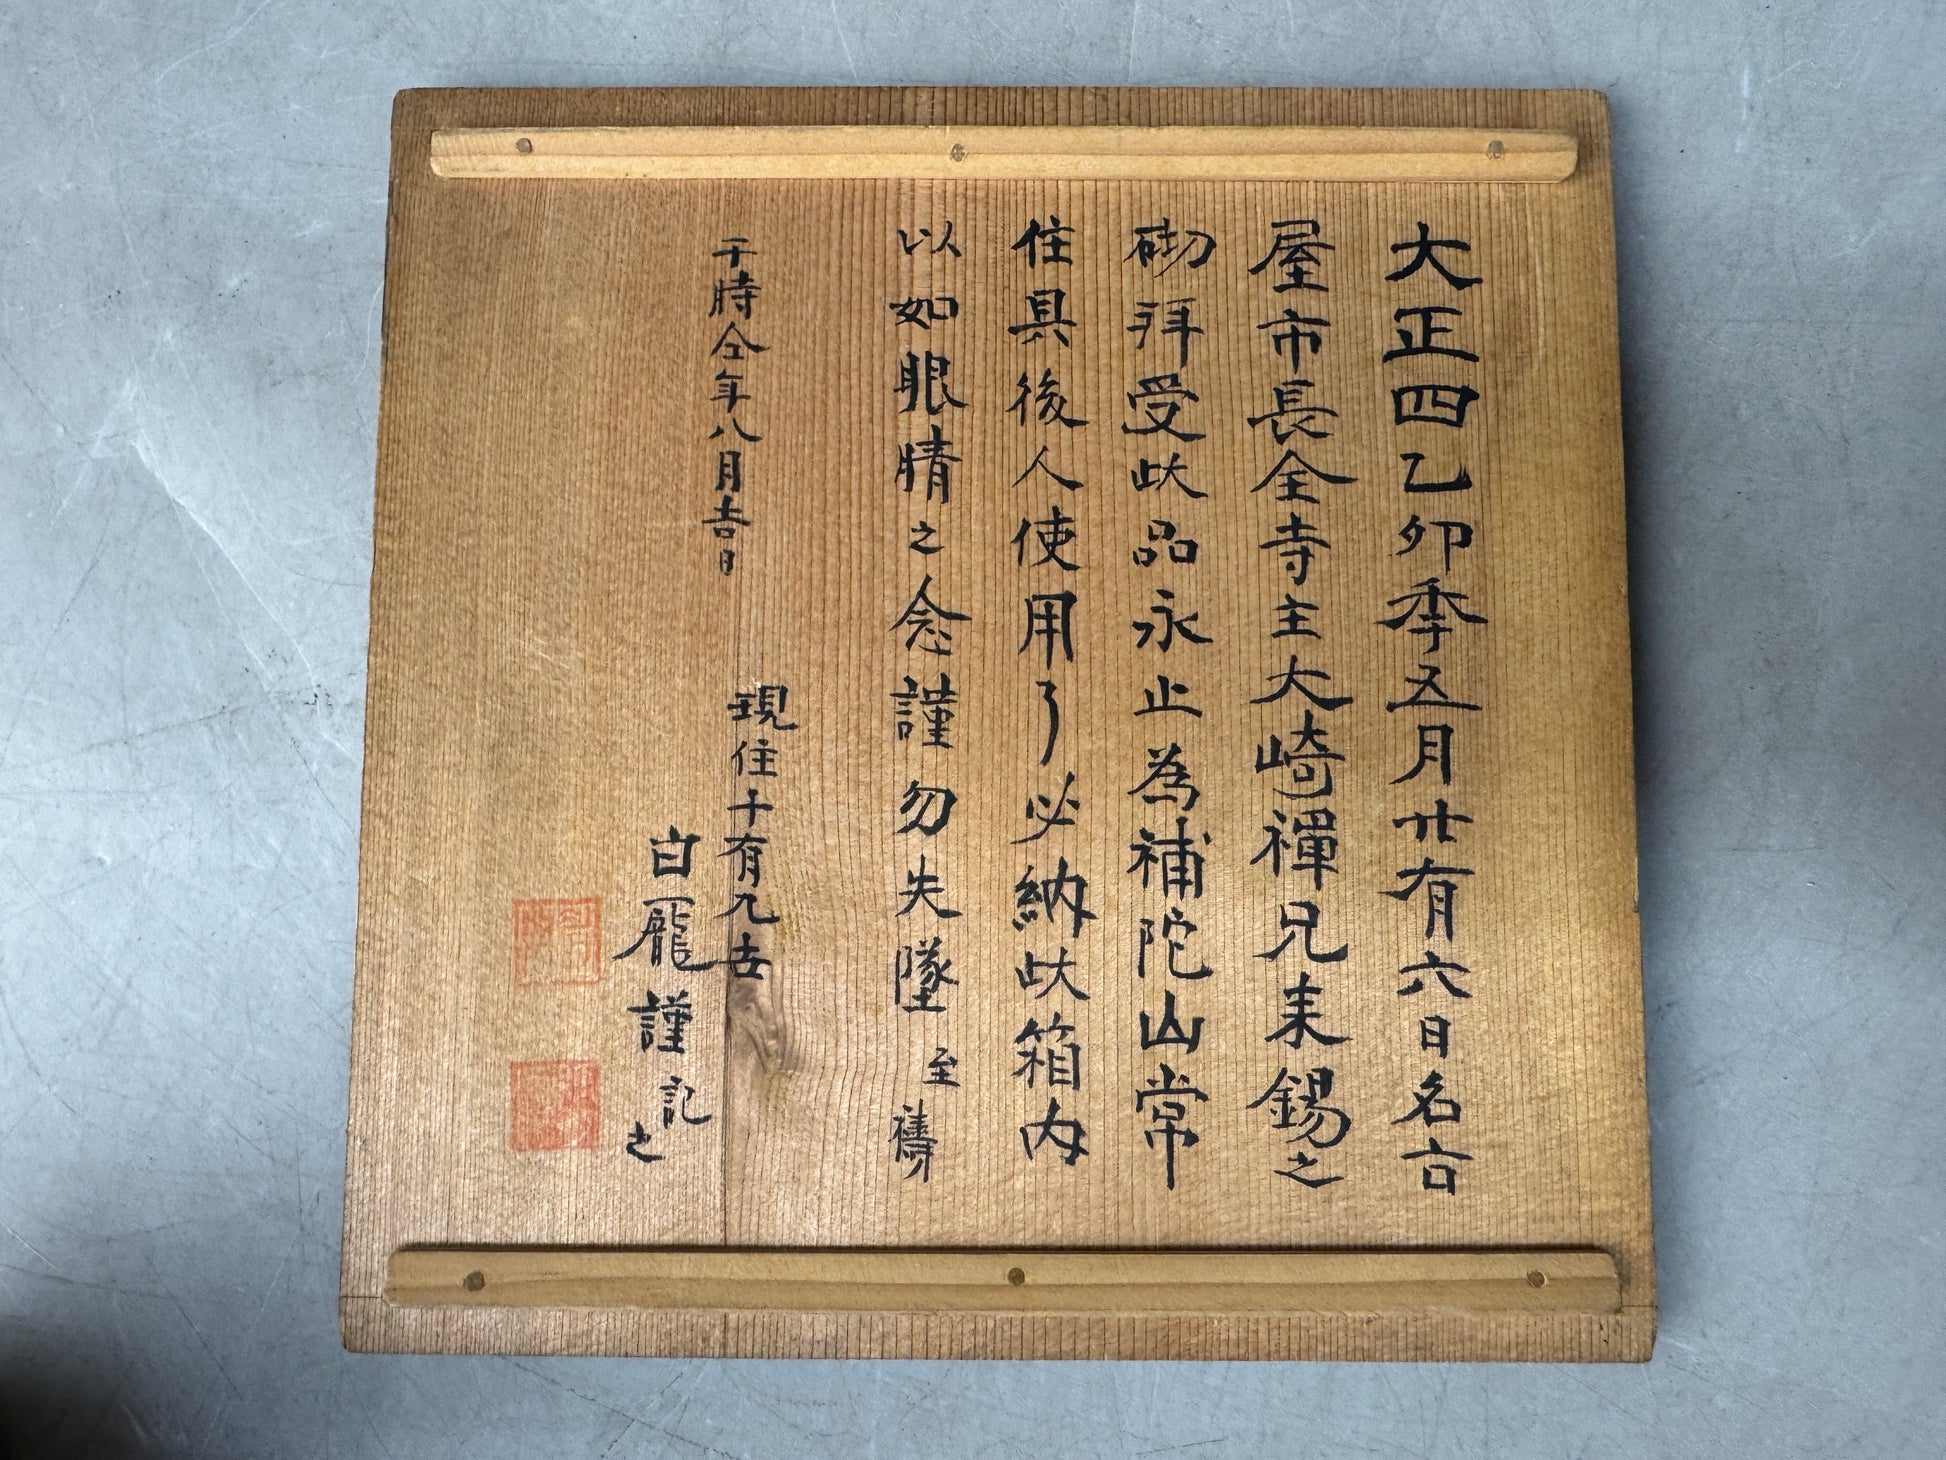 大正四乙卯季五月廿有六日名古
屋市長全寺主大崎禪兄来錫之
砌拜受此品永止為補陀山常
住具後人使用了必納此箱内
以如眼睛之念謹勿失墜 至禱
于時仝年八月吉日
現住十有九古
白龐謹記之